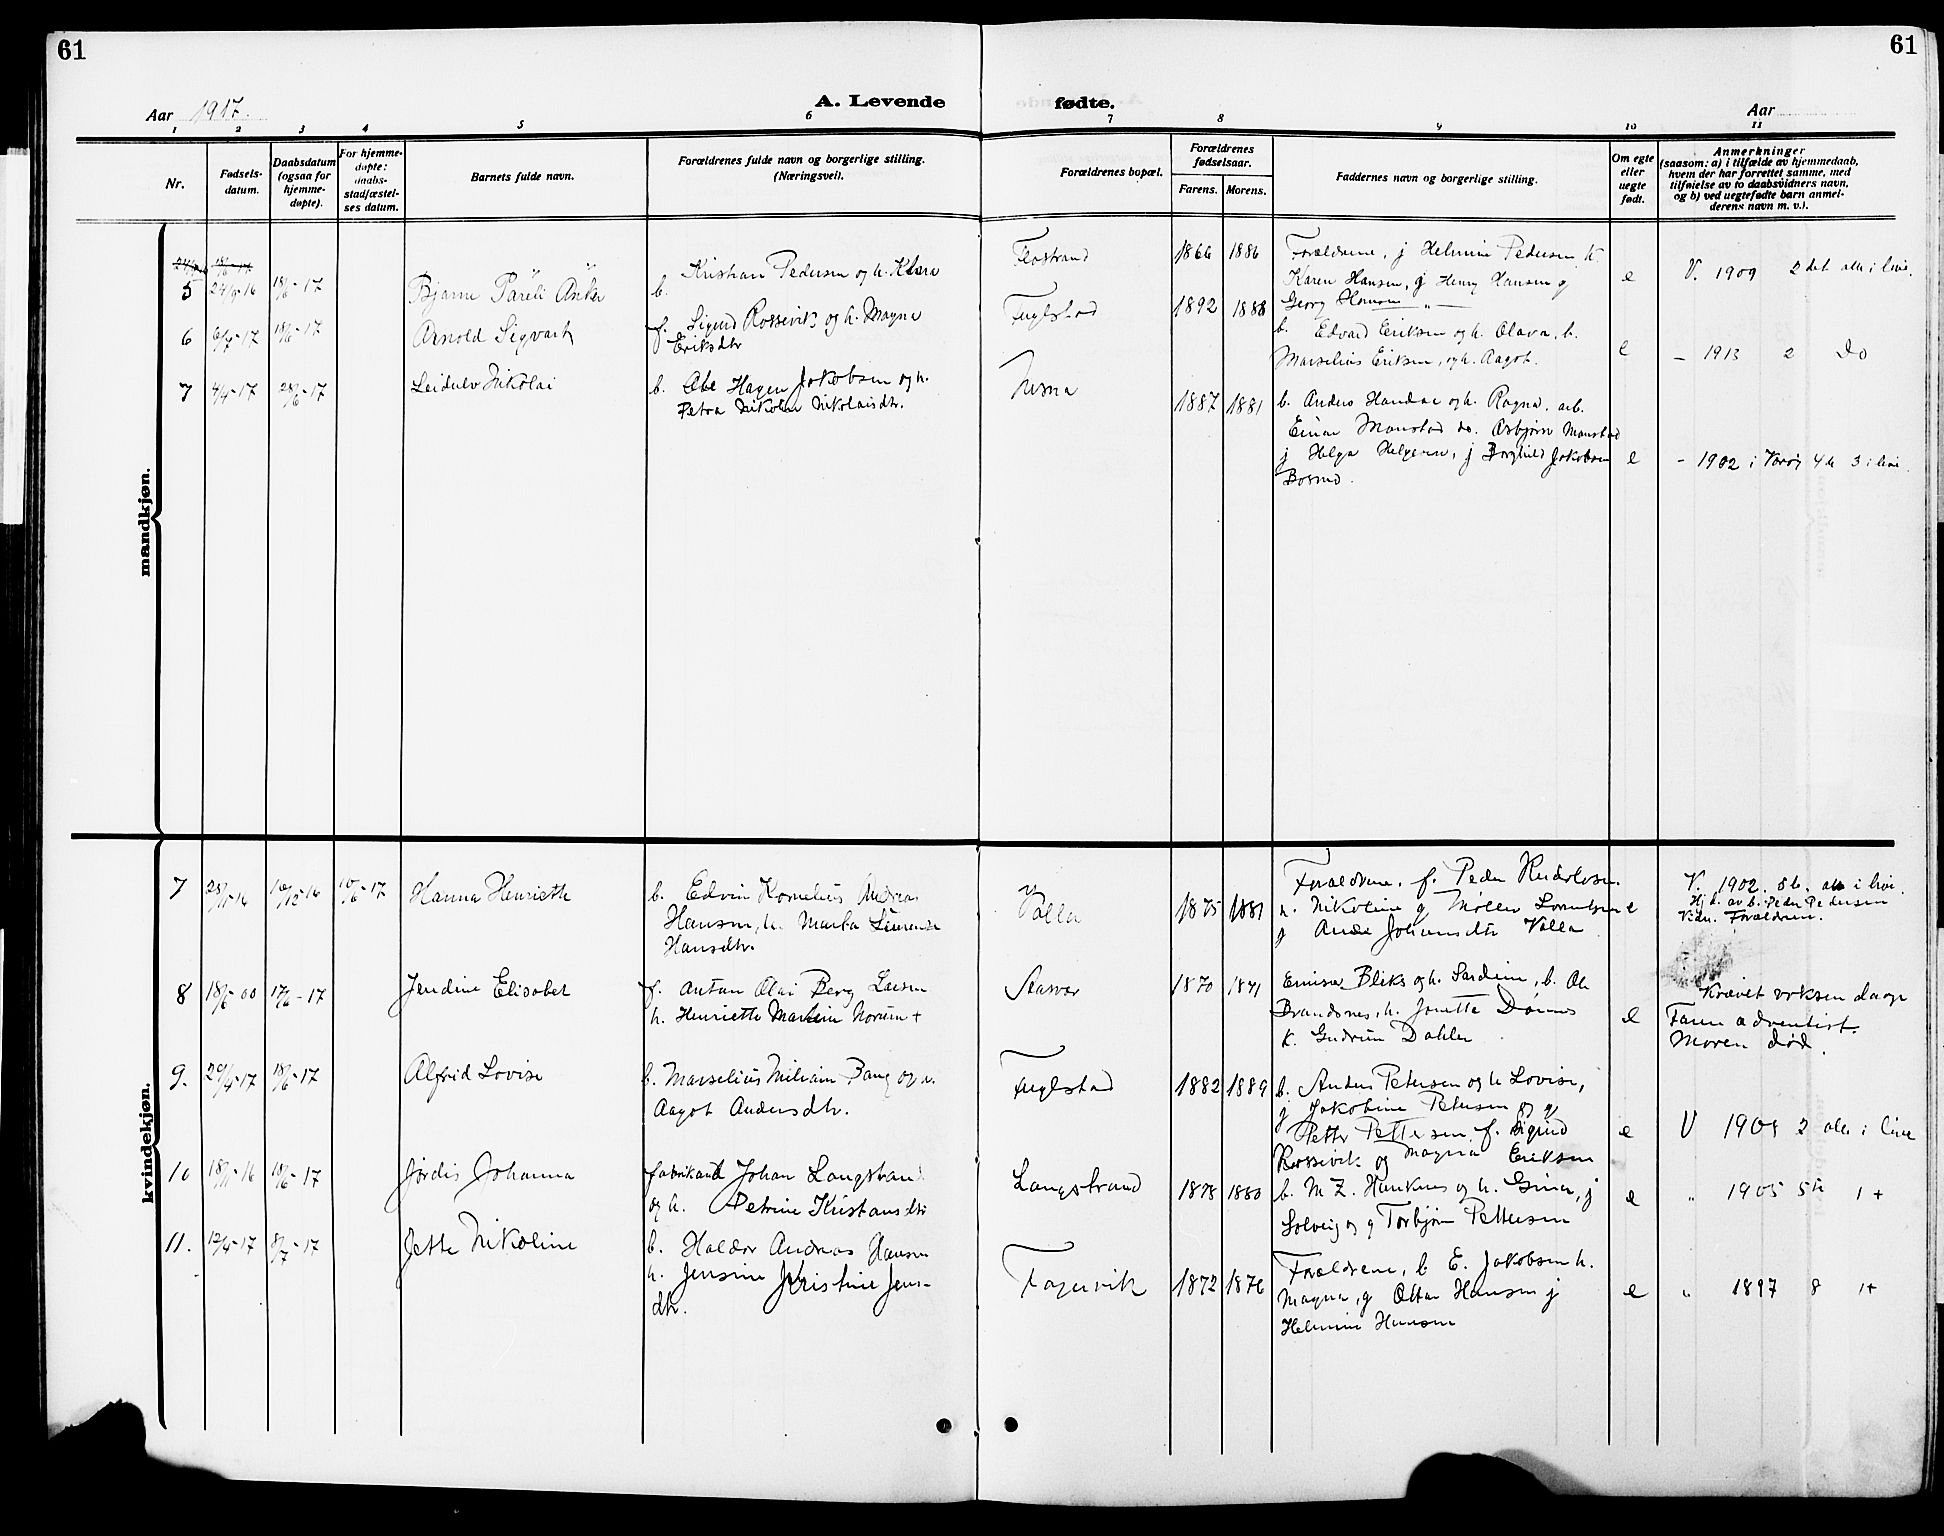 61
61
Aar 1917.
A. Levende fødte.
Aar
1 2 3 4 5 6 7 8 9 10 11
Nr.
Fødsels-
datum.
Daabsdatum
(ogsaa for
hjemme-
døpte).
For hjemme-
døpte:
daabs-
stadfæstel-
ses datum.
Barnets fulde navn.
Forældrenes fulde navn og borgerlige stilling.
(Næringsvei).
Forældrenes bopæl.
Forældrenes
fødselsaar.
Farens. Morens.
Faddernes navn og borgerlige stilling.
Om egte
eller
uegte
født.
Anmerkninger
(saasom: a) i tilfælde av hjemmedaab,
hvem der har forrettet samme, med
tilføielse av to daabsvidners navn,
og b) ved uegtefødte barn anmel-
derens navn m. v.).
mandkjøn.
5 24/9-16 18/6-17 Bjarne Pareli Anker
b. Kristian Pedersen og h. Klara
Flostrand
1866 1886
Forældrene, j Helmine Pedersen K.
Karen Hansen, g Henry Hansen g
Georg Hansen
e
V. 1909 2det alle i live.
6 6/4-17 18/6-17 Arnold Sigvart
f. Sigurd Rossevik og h. Magna
Eriksdtr
Fuglstad
1892 1888
b. Edvard Eriksen og h. Olava, b.
Marselius Eriksen, og h. Aagot.
e
- 1913 2 do
7 4/4-17 28/6-17 Leidulv Nikolai
b. Abel Hagen Jakobsen og h.
Petra Nikoline Nikolaisdtr.
Husna
1887 1881
b. Anders Handae og h. Ragna. arb.
Einar Monstad do. Asbjørn Monstad
j Helga Helgesen, j Borghild Jakobsen
e
- 1902 i Værøy 4de 3 i live.
kvindekjøn.
7 28/11-16 16/12-16 10/6-17 Hanna Henriette
b. Edvin Kornelius Andreas
Hansen, h. Marta Laurense
Hansdtr.
Valla
1875 1881
Forældrene, f. Peder Rudolvsen
h. Nikoline g Møller Lorentsen
g Anda Johansdtr Valla
e
V. 1902. 8b. alle i live.
Hj.d. av b. Peder Pedersen
Vidn. Forældren.
8 18/5-00 17/6-17 Jendine Elisabet
f. Anton Olai Berg Larsen
h. Henriette Martin Norum +
Aasvær
1870 1871
Einar Bliks og h. Sardine, b. Ole
Brandsnes, h. Jonette Dønnes
K. Gudrun Dahlen
e
Krævet voksen daap
Faren adventist.
Moren død.
9. 29/4-17 18/6-17 Alfrid Lovise
b. Marselius Miliam Bang og h.
Aagot Andersdtr.
Fuglstad
1882 1889
b. Anders Petersen og h Lovise,
j Jakobine Petersen og g
Petter Pettersen, f. Sigurd
Rossevik og Magna Eriksen
e
V 1905 2 alle i live
10 18/11-16 18/6-17 Jordis Johanna
fabrikant Johan Langstrand
og h. Petrine Kristansdtr
Langstrand
1878 1880
b. M Z. Hanknes og h. Gina, j
Solveig og g Torbjørn Pettersen
e
" 1905 5te 1 +
11. 12/4-17 8/7-17 Jette Nikoline
b. Haldor Andreas Hansen
h. Jensine Kristine Jens-
dtr.
Fagervik
1872 1876
Forældrene, b E. Jakobsen h.
Magna, g Ottar Hansen j
Helmine Hansen
e
" 1897 8 1+